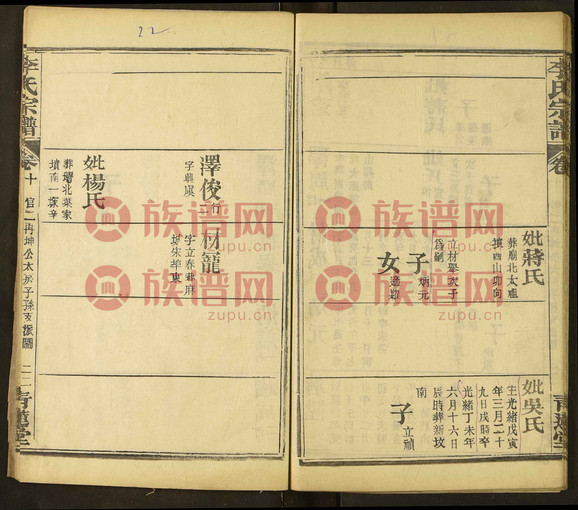 妣吳氏
生光緒戊寅
年三月二十
九日戌時卒
光緒丁未年
六月十六日
辰時葬新坟
南
子
立禎
妣蔣氏
葬廟北太
山卯向
子
炳元
女
適
立材舉次子
為嗣
李氏宗譜
卷
青蓮堂
22
澤俊
行二
字興
材寵
字立春葬麻
妣楊氏
葬 北葉家
墳南一塚辛
李氏宗譜
卷十
官二冉坤公太 子孫支派圖
二二
青蓮堂
族谱网
zupu.cn
族谱网
zupu.cn
族谱网
zupu.cn
族谱网
zupu.cn